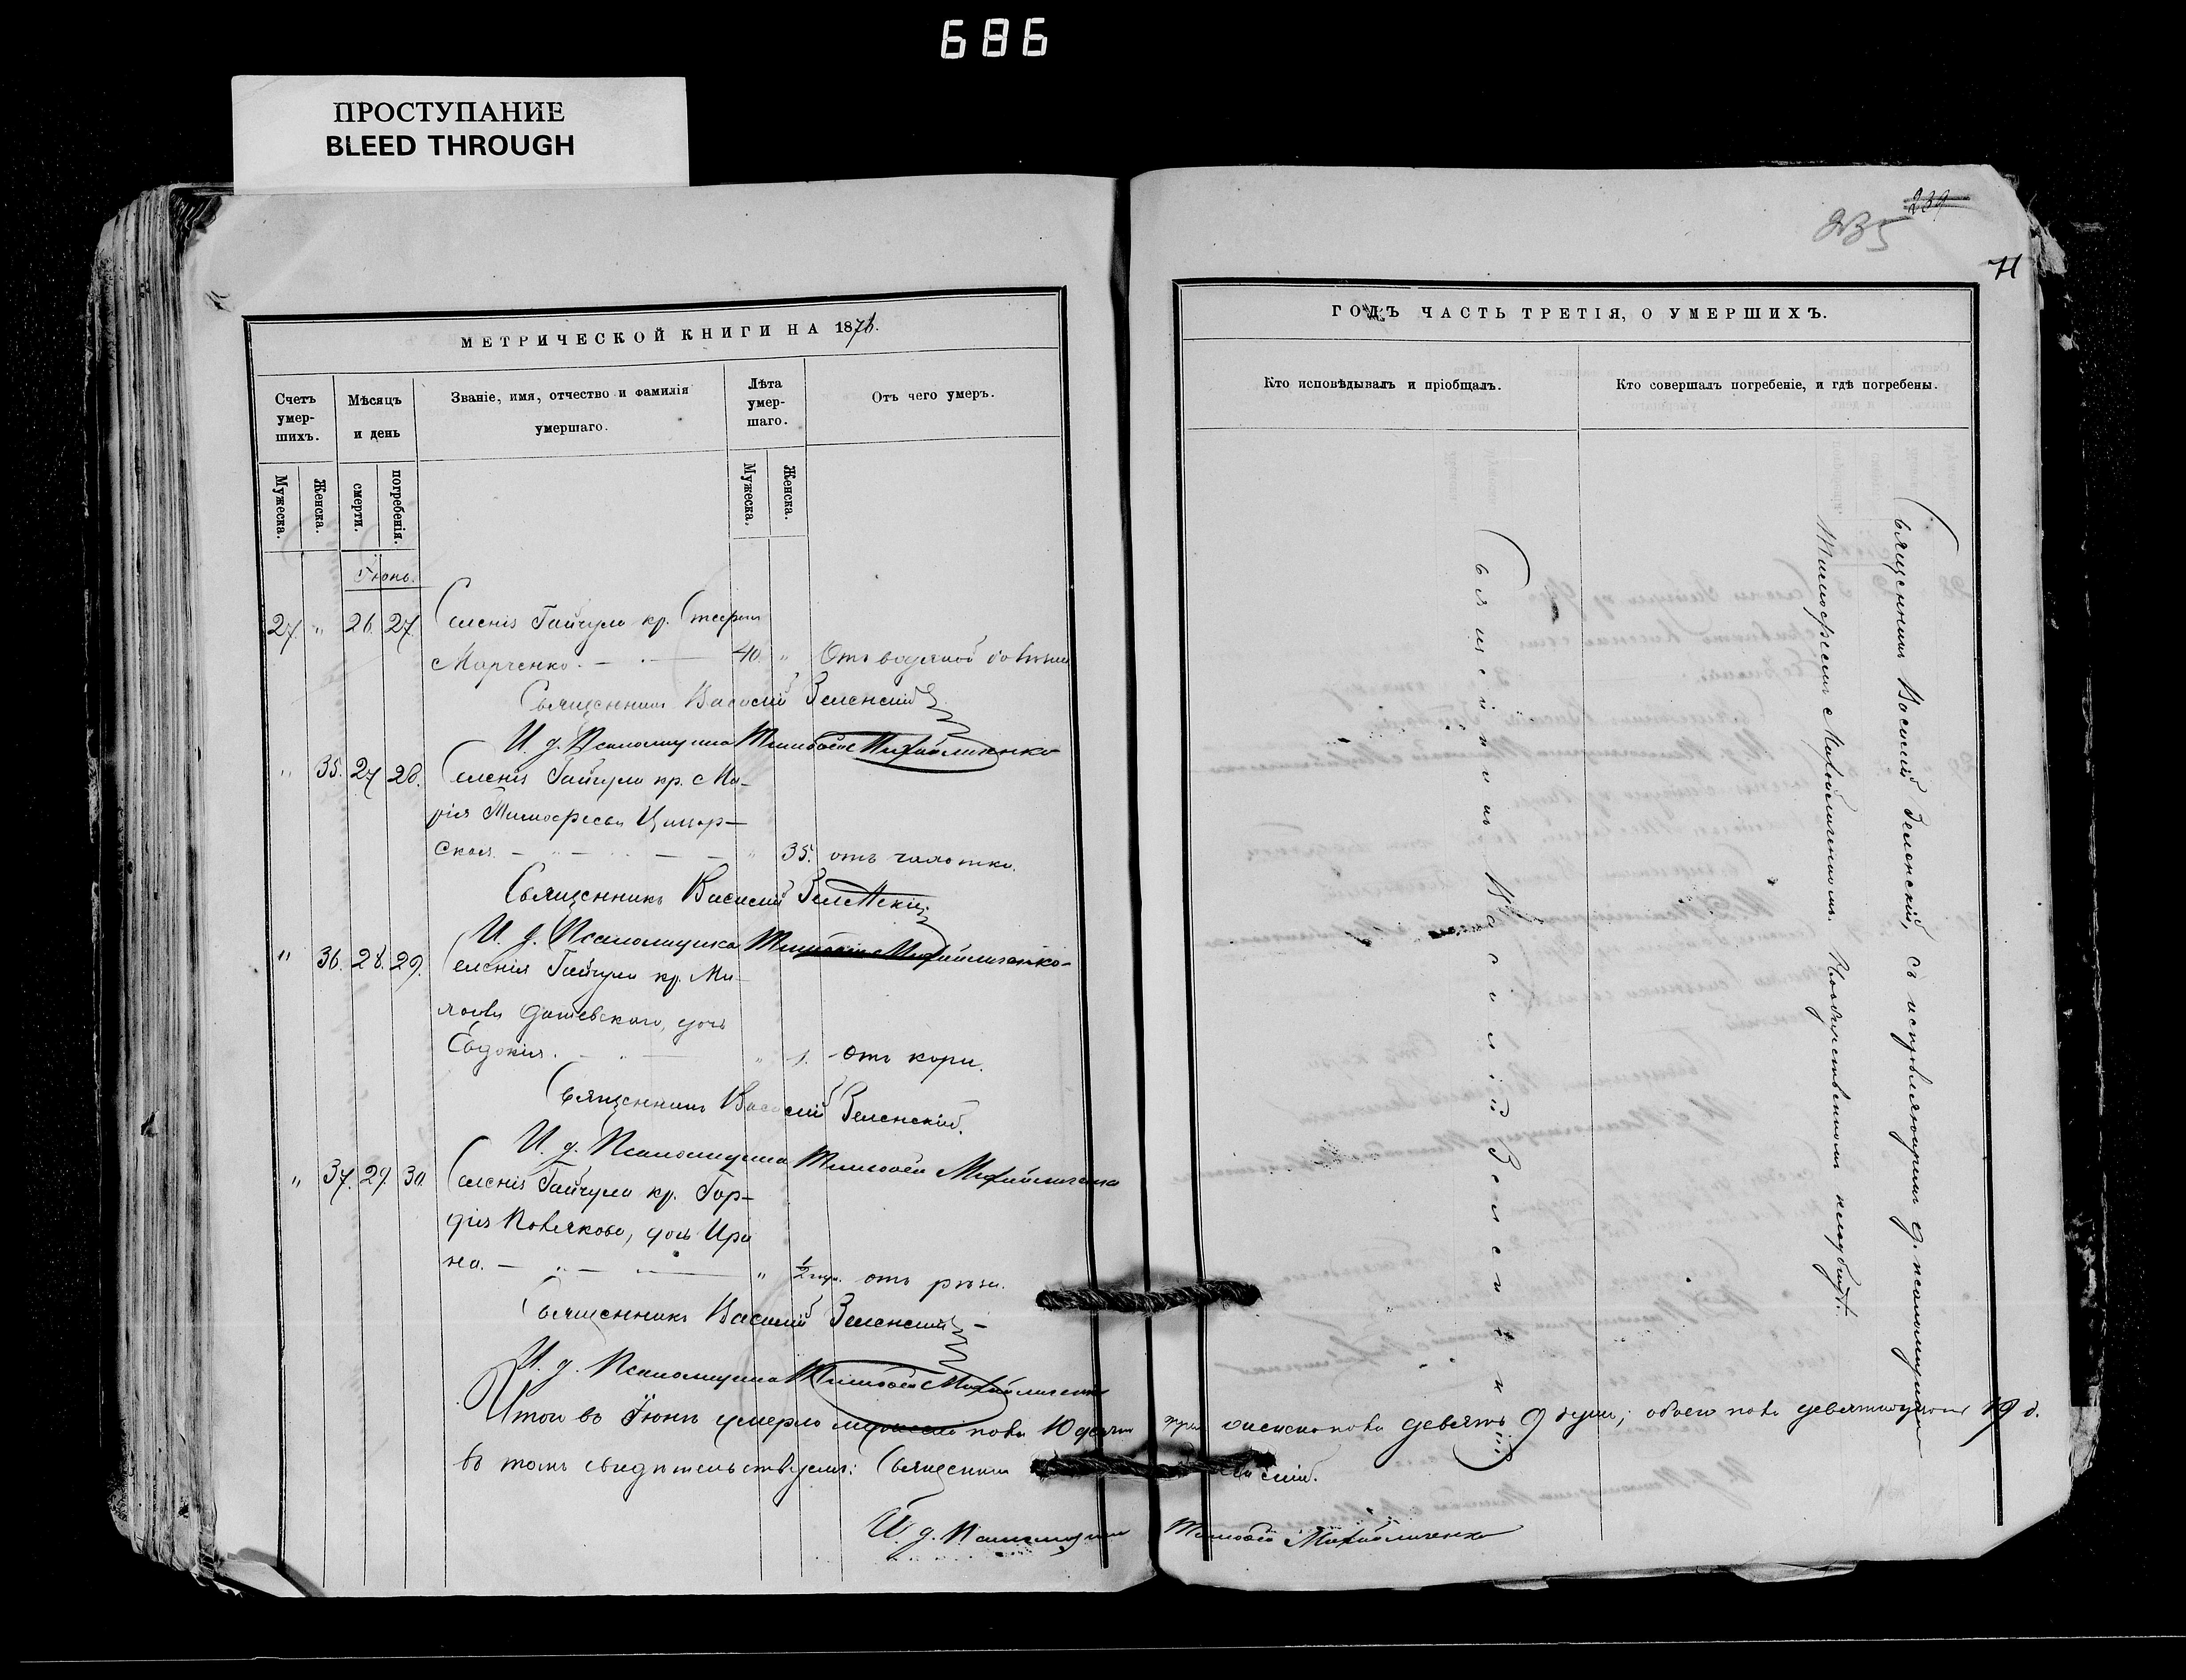 686
ПРОСТУПАНИЕ
BLEED THROUGH
МЕТРИЧЕСКОЙ КНИГИ НА 1876.
Счетъ умер-шихъ.
Мѣсяцъ и день
Званіе, имя, отчество и фамилія умершаго.
Лѣта умер-шаго.
Отъ чего умеръ.
Мужеска.
Женска.
смерти.
погребенія.
Мужеска.
Женска.
Іюнь.
27. " 26. 27. Селенія Гайчула кр.
Марченко. 40. " Отъ водяной болѣзни
Священникъ Василій Зеленскій
И. д. Псаломщика Тимофей Михайличенко
" 35. 27 28. Селенія Гайчула кр. Ма-
рія Тимофеева
ская. " 35. отъ чахотки.
Священникъ Василій Зеленскій
И. д. Псаломщика Тимофей Михайличенко
" 36. 28. 29. Селенія Гайчула кр.
дочь
Евдокія. " 1. Отъ кори.
Священникъ Василій Зеленскій.
И. д. Псаломщика Тимофей Михайличенко
" 37. 29. 30. Селенія Гайчула кр. Гор-
дія Полякова, дочь Ири
на. " 1/2 отъ
Священникъ Василій Зеленскій
И. д. Псаломщика Тимофей Михайличенко
Итого въ Іюнѣ умерло мужеска пола 10
въ томъ свидѣтельствуемъ: Священникъ
И. д. Псаломщика
239
235
71
ГОДЪ ЧАСТЬ ТРЕТІЯ, О УМЕРШИХЪ.
Кто исповѣдывалъ и пріобщалъ.
Кто совершалъ погребеніе, и гдѣ погребены.
Священникъ Василій Зеленскій
Священникъ Василій Зеленскій, съ исправляющимъ д. псаломщика
Тимофеемъ Михайличенкомъ.
девять 9 душъ; обоего пола девятнадцать 19 д.
Тимофей Михайличенко